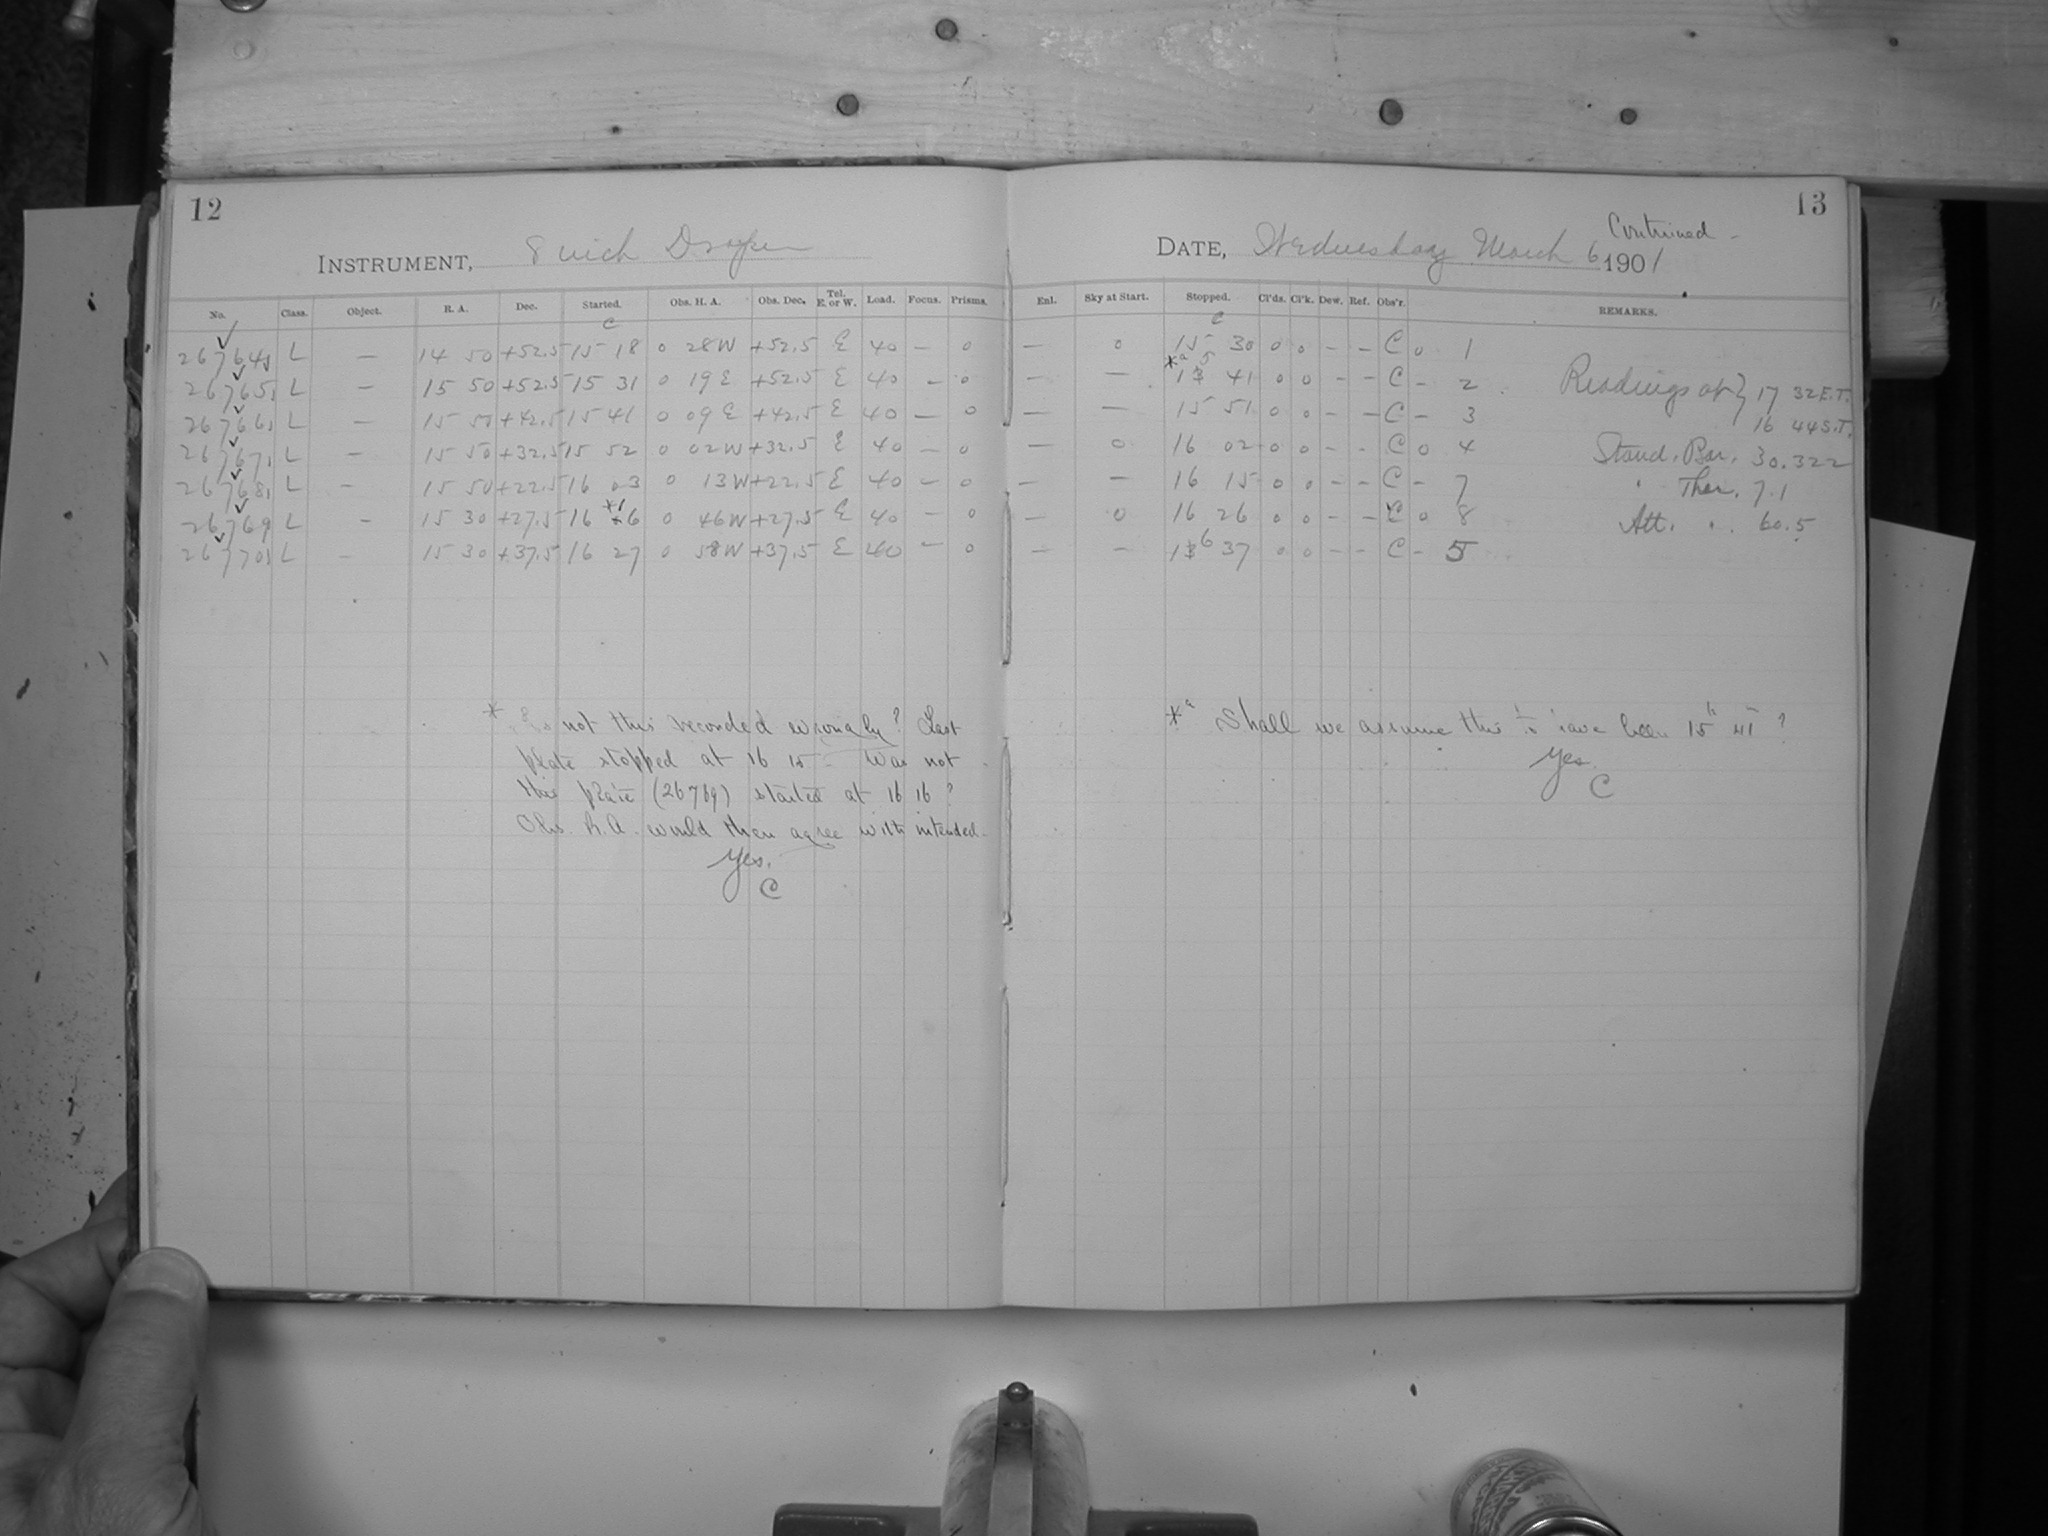 12
INSTRUMENT, 8 inch Draper
No. Class. Object. R. A. Dec. Started. Obs. H. A. Obs. Dec. Tel. E. or W. Load. Focus. Prisms.
c
26764, L — 14 50 +52.5 15 18 0 28W +52.5 E 40 — 0
26765, L — 15 50 +52.5 15 31 0 19 E +52.5 E 40 — 0
26766, L — 15 50 +42.5 15 41 0 09 E +42.5 E 40 — 0
26767, L — 15 50 +32.5 15 52 0 02W +32.5 E 40 — 0
26768, L — 15 50 +22.5 16 03 0 13W +22.5 E 40 — 0
26769 L — 15 30 +27.5 16 *16 0 46W +27.5 E 40 — 0
26770, L — 15 30 +37.5 16 27 0 58W +37.5 E 40 — 0
* Is not this recorded wrongly? Last
plate stopped at 16 15 – Was not
this plate (26769) started at 16 16?
Obs. R.A. would then agree with intended.
Yes.
C
13
Continued –
DATE, Wednesday March 6 1901
Enl. Sky at Start. Stopped. Cl'ds. Cl'k. Dew. Ref. Obs'r. REMARKS.
c
— 0 15 30 0 0 – – C 0 1
— — *a 15 41 0 0 – – C – 2
— — 15 51 0 0 – – C – 3
— 0 16 02 0 0 – – C 0 4
— — 16 15 0 0 – – C – 7
— 0 16 26 0 0 – – C 0 8
— — 16 37 0 0 – – C – 5
Readings at } 17 32 E.T.
16 44 S.T.
Stand. Bar. 30.322
" Ther. 7.1
Att. " 60.5
*a Shall we assume this to have been 15h 41m?
Yes.
C